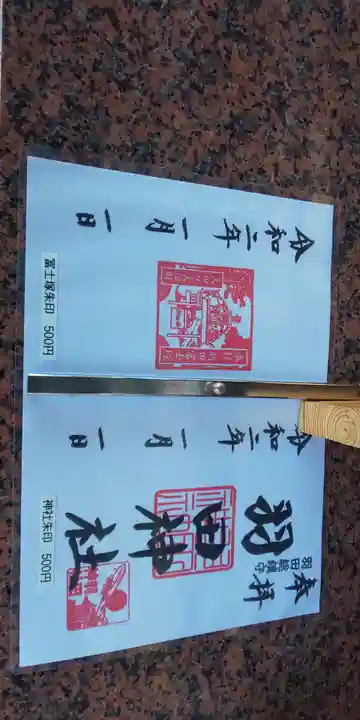 奉拝
羽田総鎮守
羽田神社
令和二年一月一日
神社朱印 500円
令和二年一月一日
冨士塚朱印 500円